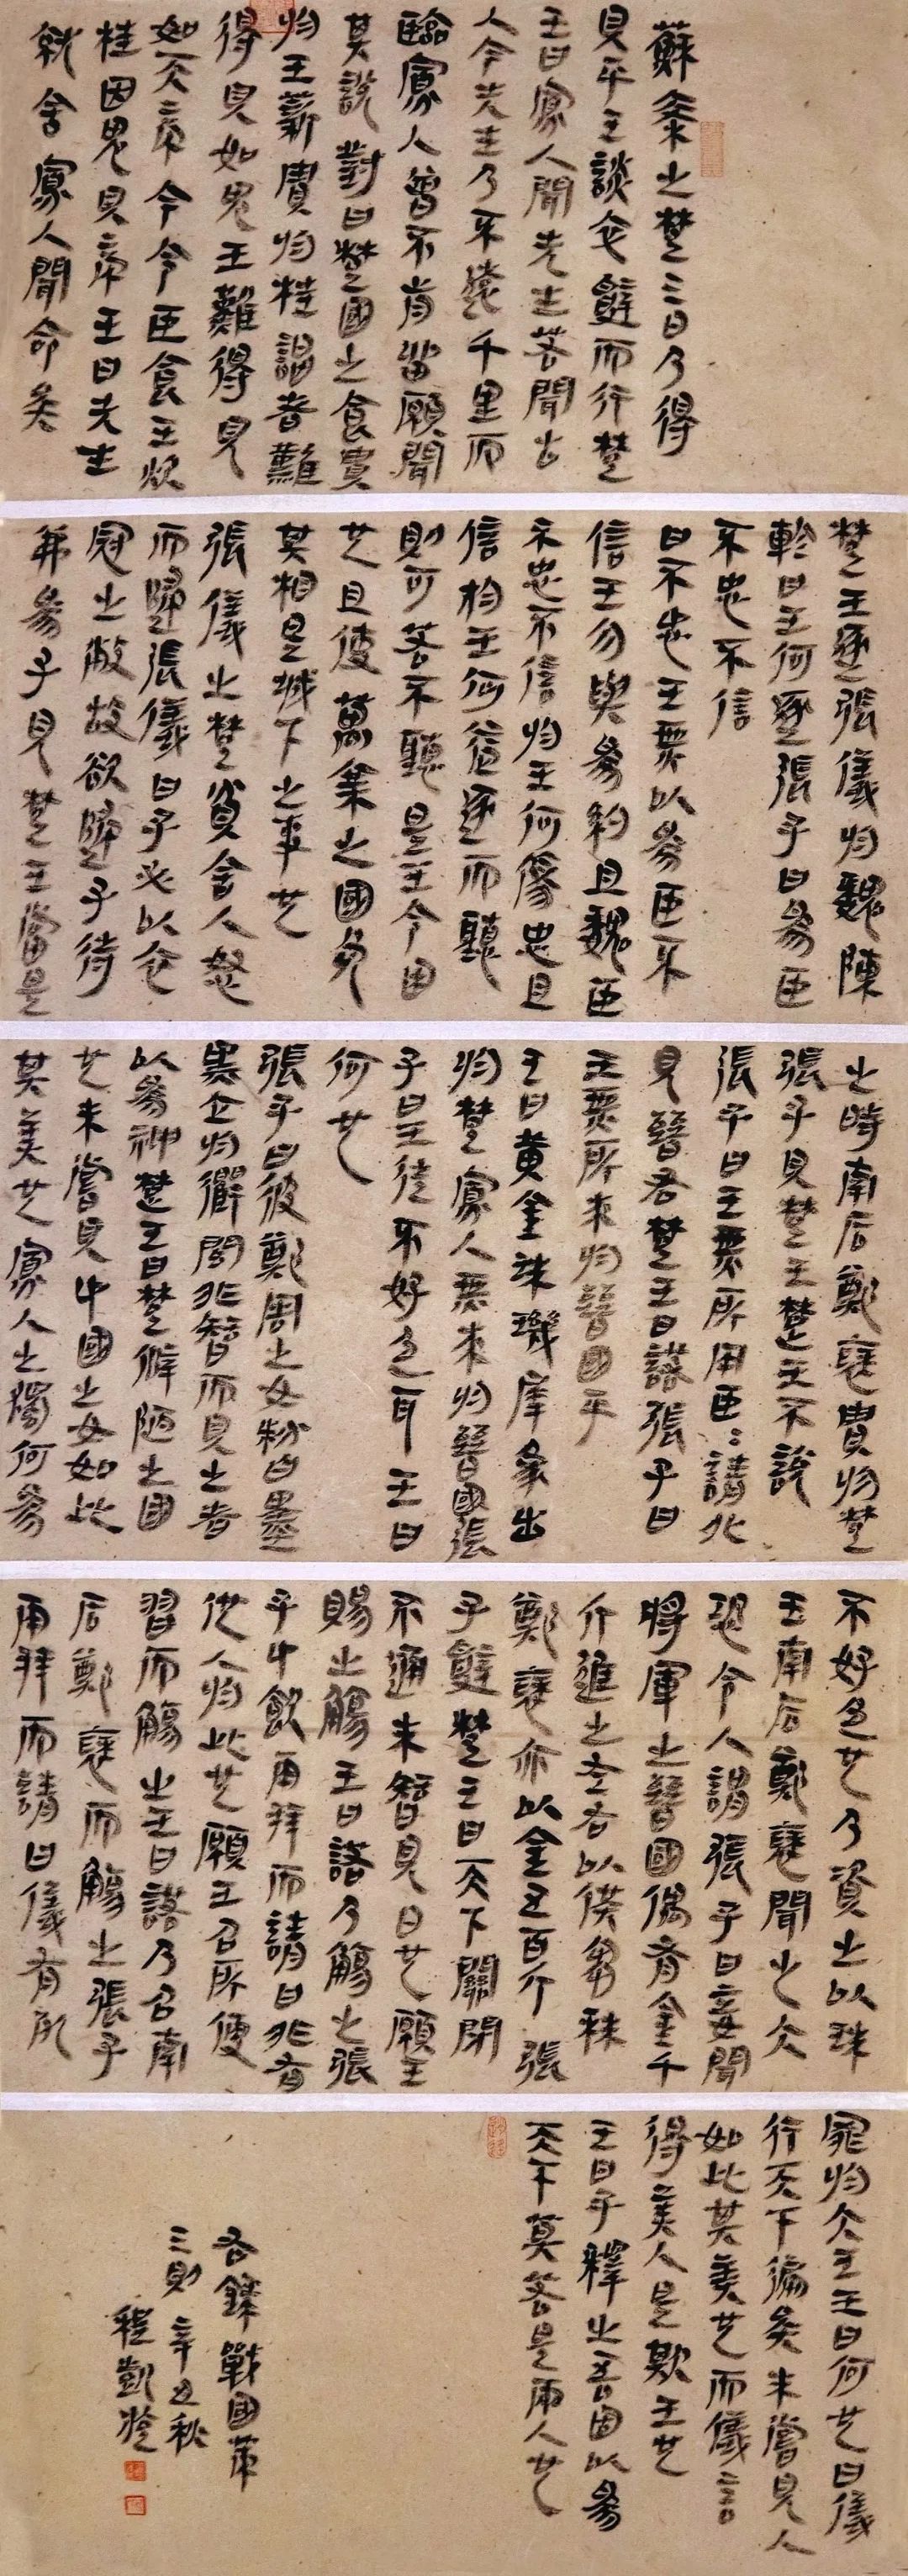 蘇秦之楚三日乃得
見乎王談卒辭而行楚
王曰寡人聞先生若聞古
人今先生乃不遠千里而
臨寡人曾不肯留願聞
其說對曰楚國之食貴
於玉薪貴於桂謁者難
得見如鬼王難得見
如天帝今令臣食玉炊
桂因鬼見帝王曰先生
就舍寡人聞命矣
楚王逐張儀於魏陳
軫曰王何逐張子曰為臣
不忠不信
曰不忠王無以為臣不
信王勿與為約且魏臣
不忠不信於王何傷忠且
信於王何益逐而聽
則可若不聽是王令困
也且使萬乘之國免
其相是城下之事也
張儀之楚貧舍人怒
而歸張儀曰子必以衣
冠之敝故欲歸子待
我為子見楚王當是
之時南后鄭褎貴於楚
張子見楚王楚王不說
張子曰王無所用臣臣請北
見晉君楚王曰諾張子曰
王無所求於晉國乎
王曰黃金珠璣犀象出
於楚寡人無求於晉國張
子曰王徒不好色耳王曰
何也
張子曰彼鄭周之女粉白墨
黑立於衢閭非智而見之者
以為神楚王曰楚僻陋之國
也未嘗見中國之女如此
其美也寡人之獨何為
不好色也乃資之以珠
玉南后鄭褎聞之大
恐令人謂張子曰妾聞
將軍之晉國偶有金千
斤進之左右以供芻秣
鄭褎亦以金五百斤張
子辭楚王曰天下關閉
不通未智見日也願王
賜之觴王曰諾乃觴之張
子中飲再拜而請曰非有
他人於此也願王召所便
習而觴之王曰諾乃召南
后鄭褎而觴之張子
再拜而請曰儀有死
罪於大王王曰何也曰儀
行天下徧矣未嘗見人
如此其美也而儀言
得美人是欺王也
王曰子釋之吾固以為
天下莫若是兩人也
右錄戰國策
三則 辛丑秋
程凱